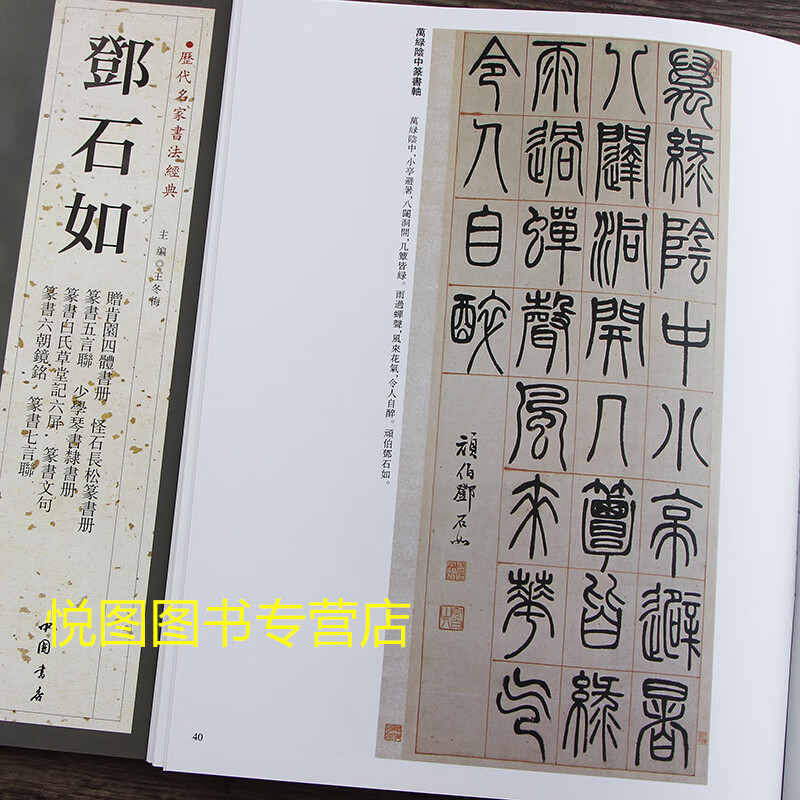 歷代名家書法經典
鄧石如
主編◎王冬梅
贈肯園四體書册·怪石長松篆書册
篆書五言聯·少學琴書隸書册
篆書白氏草堂記六屏·篆書文句
篆書六朝鏡銘·篆書七言聯
中國書店
萬緑陰中篆書軸
萬緑陰中，小亭避暑，八闥洞開，几簟皆緑。雨過蟬聲，風來花氣，令人自醉。頑伯鄧石如。
萬緑陰中小亭避暑
八闥洞開几簟皆緑
雨過蟬聲風來華气
令人自醉
頑伯鄧石如
40
悦图图书专营店